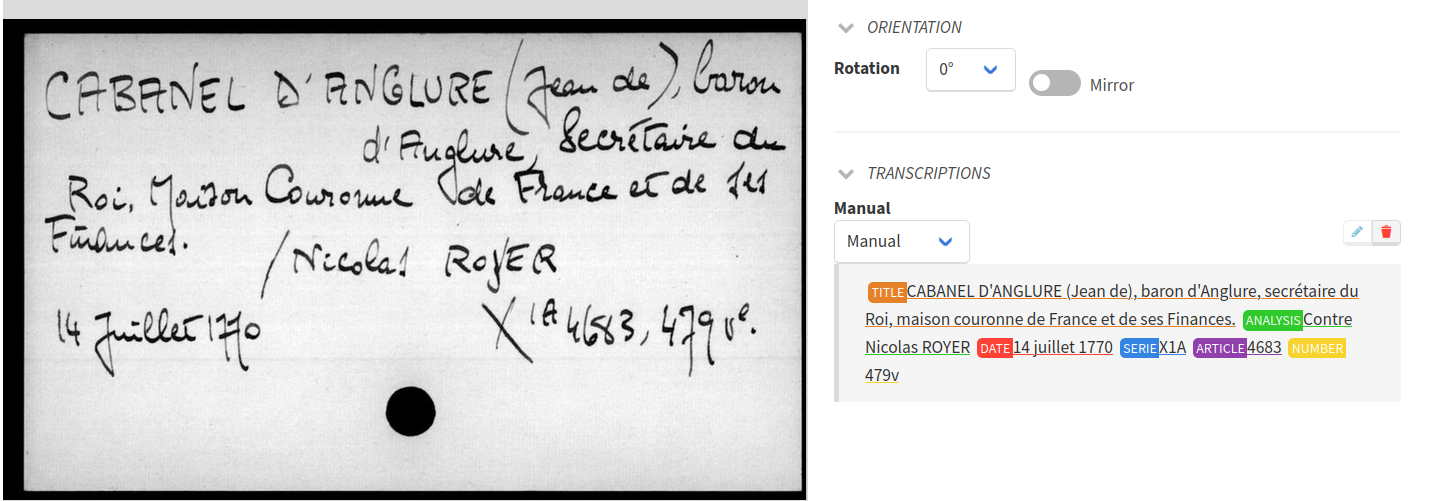 CABANEL D'ANGLURE (Jean de), baron
d'Anglure, Secrétaire du
Roi, Maison Couronne de France et de ses
Finances.
/Nicolas ROYER
14 Juillet 1770
X 1A 4683, 479 vº.
ORIENTATION
Rotation
0°
Mirror
TRANSCRIPTIONS
Manual
Manual
TITLE CABANEL D'ANGLURE (Jean de), baron d'Anglure, secrétaire du
Roi, maison couronne de France et de ses Finances. ANALYSIS Contre
Nicolas ROYER DATE 14 juillet 1770 SERIE X1A ARTICLE 4683 NUMBER
479v